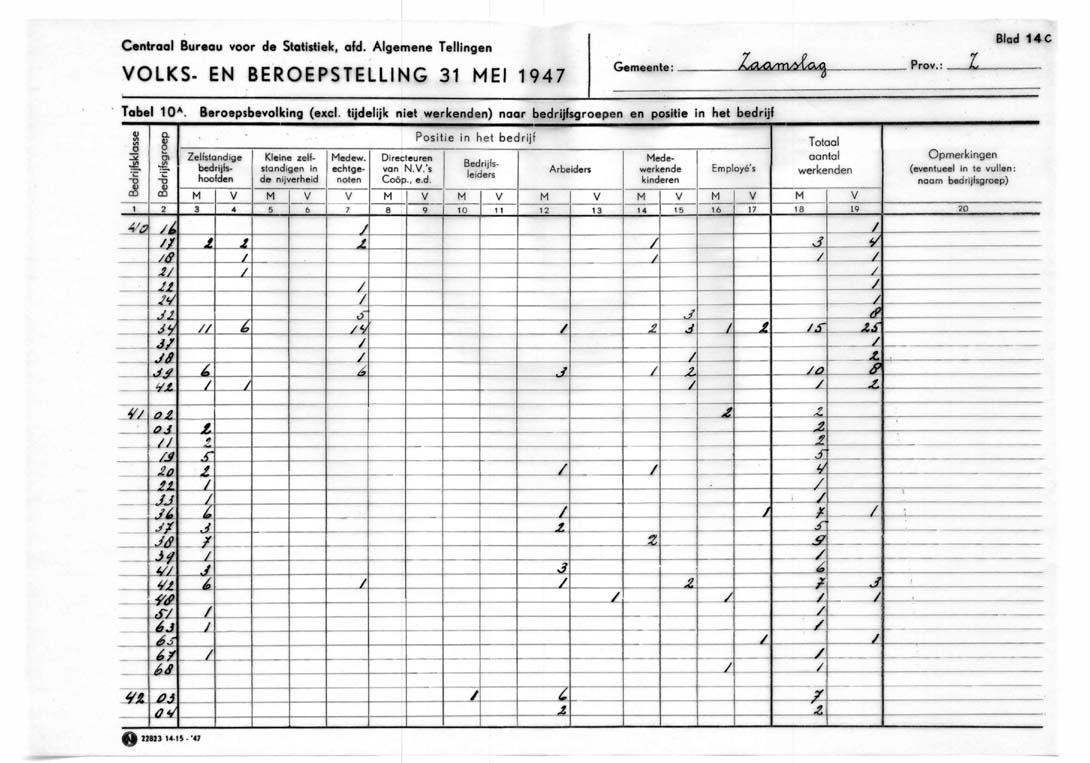 Blad 14 C
Centraal Bureau voor de Statistiek, afd. Algemene Tellingen
VOLKS- EN BEROEPSTELLING 31 MEI 1947
Gemeente: Zaamslag Prov.: Z
Tabel 10A. Beroepsbevolking (excl. tijdelijk niet werkenden) naar bedrijfsgroepen en positie in het bedrijf
Bedrijfsklasse Bedrijfsgroep Positie in het bedrijf Totaal aantal werkenden Opmerkingen (eventueel in te vullen: naam bedrijfsgroep)
Zelfstandige bedrijfshoofden Kleine zelfstandigen in de nijverheid Medew. echtgenoten Directeuren van N.V.'s Coöp., e.d. Bedrijfsleiders Arbeiders Medewerkende kinderen Employé's
M V M V V M V M V M V M V M V M V
1 2 3 4 5 6 7 8 9 10 11 12 13 14 15 16 17 18 19 20
40 16 1 1
17 2 2 2 1 3 4
18 1 1 1 1
21 1 1
22 1 1
24 1 1
32 5 3 8
34 11 6 14 1 2 3 1 2 15 25
37 1 1
38 1 1 2
39 6 6 3 1 2 10 8
42 1 1 1 1 2
41 02 2 2
03 2 2
11 2 2
19 5 5
20 2 1 1 4
22 1 1
33 1 1
36 6 1 1 7 1
37 3 2 5
38 7 2 9
39 1 1
41 3 3 6
42 6 1 1 2 7 3
48 1 1 1 1
51 1 1
63 1 1
65 1 1
67 1 1
68 1 1
42 03 1 6 7
04 2 2
22823 14-15 - '47